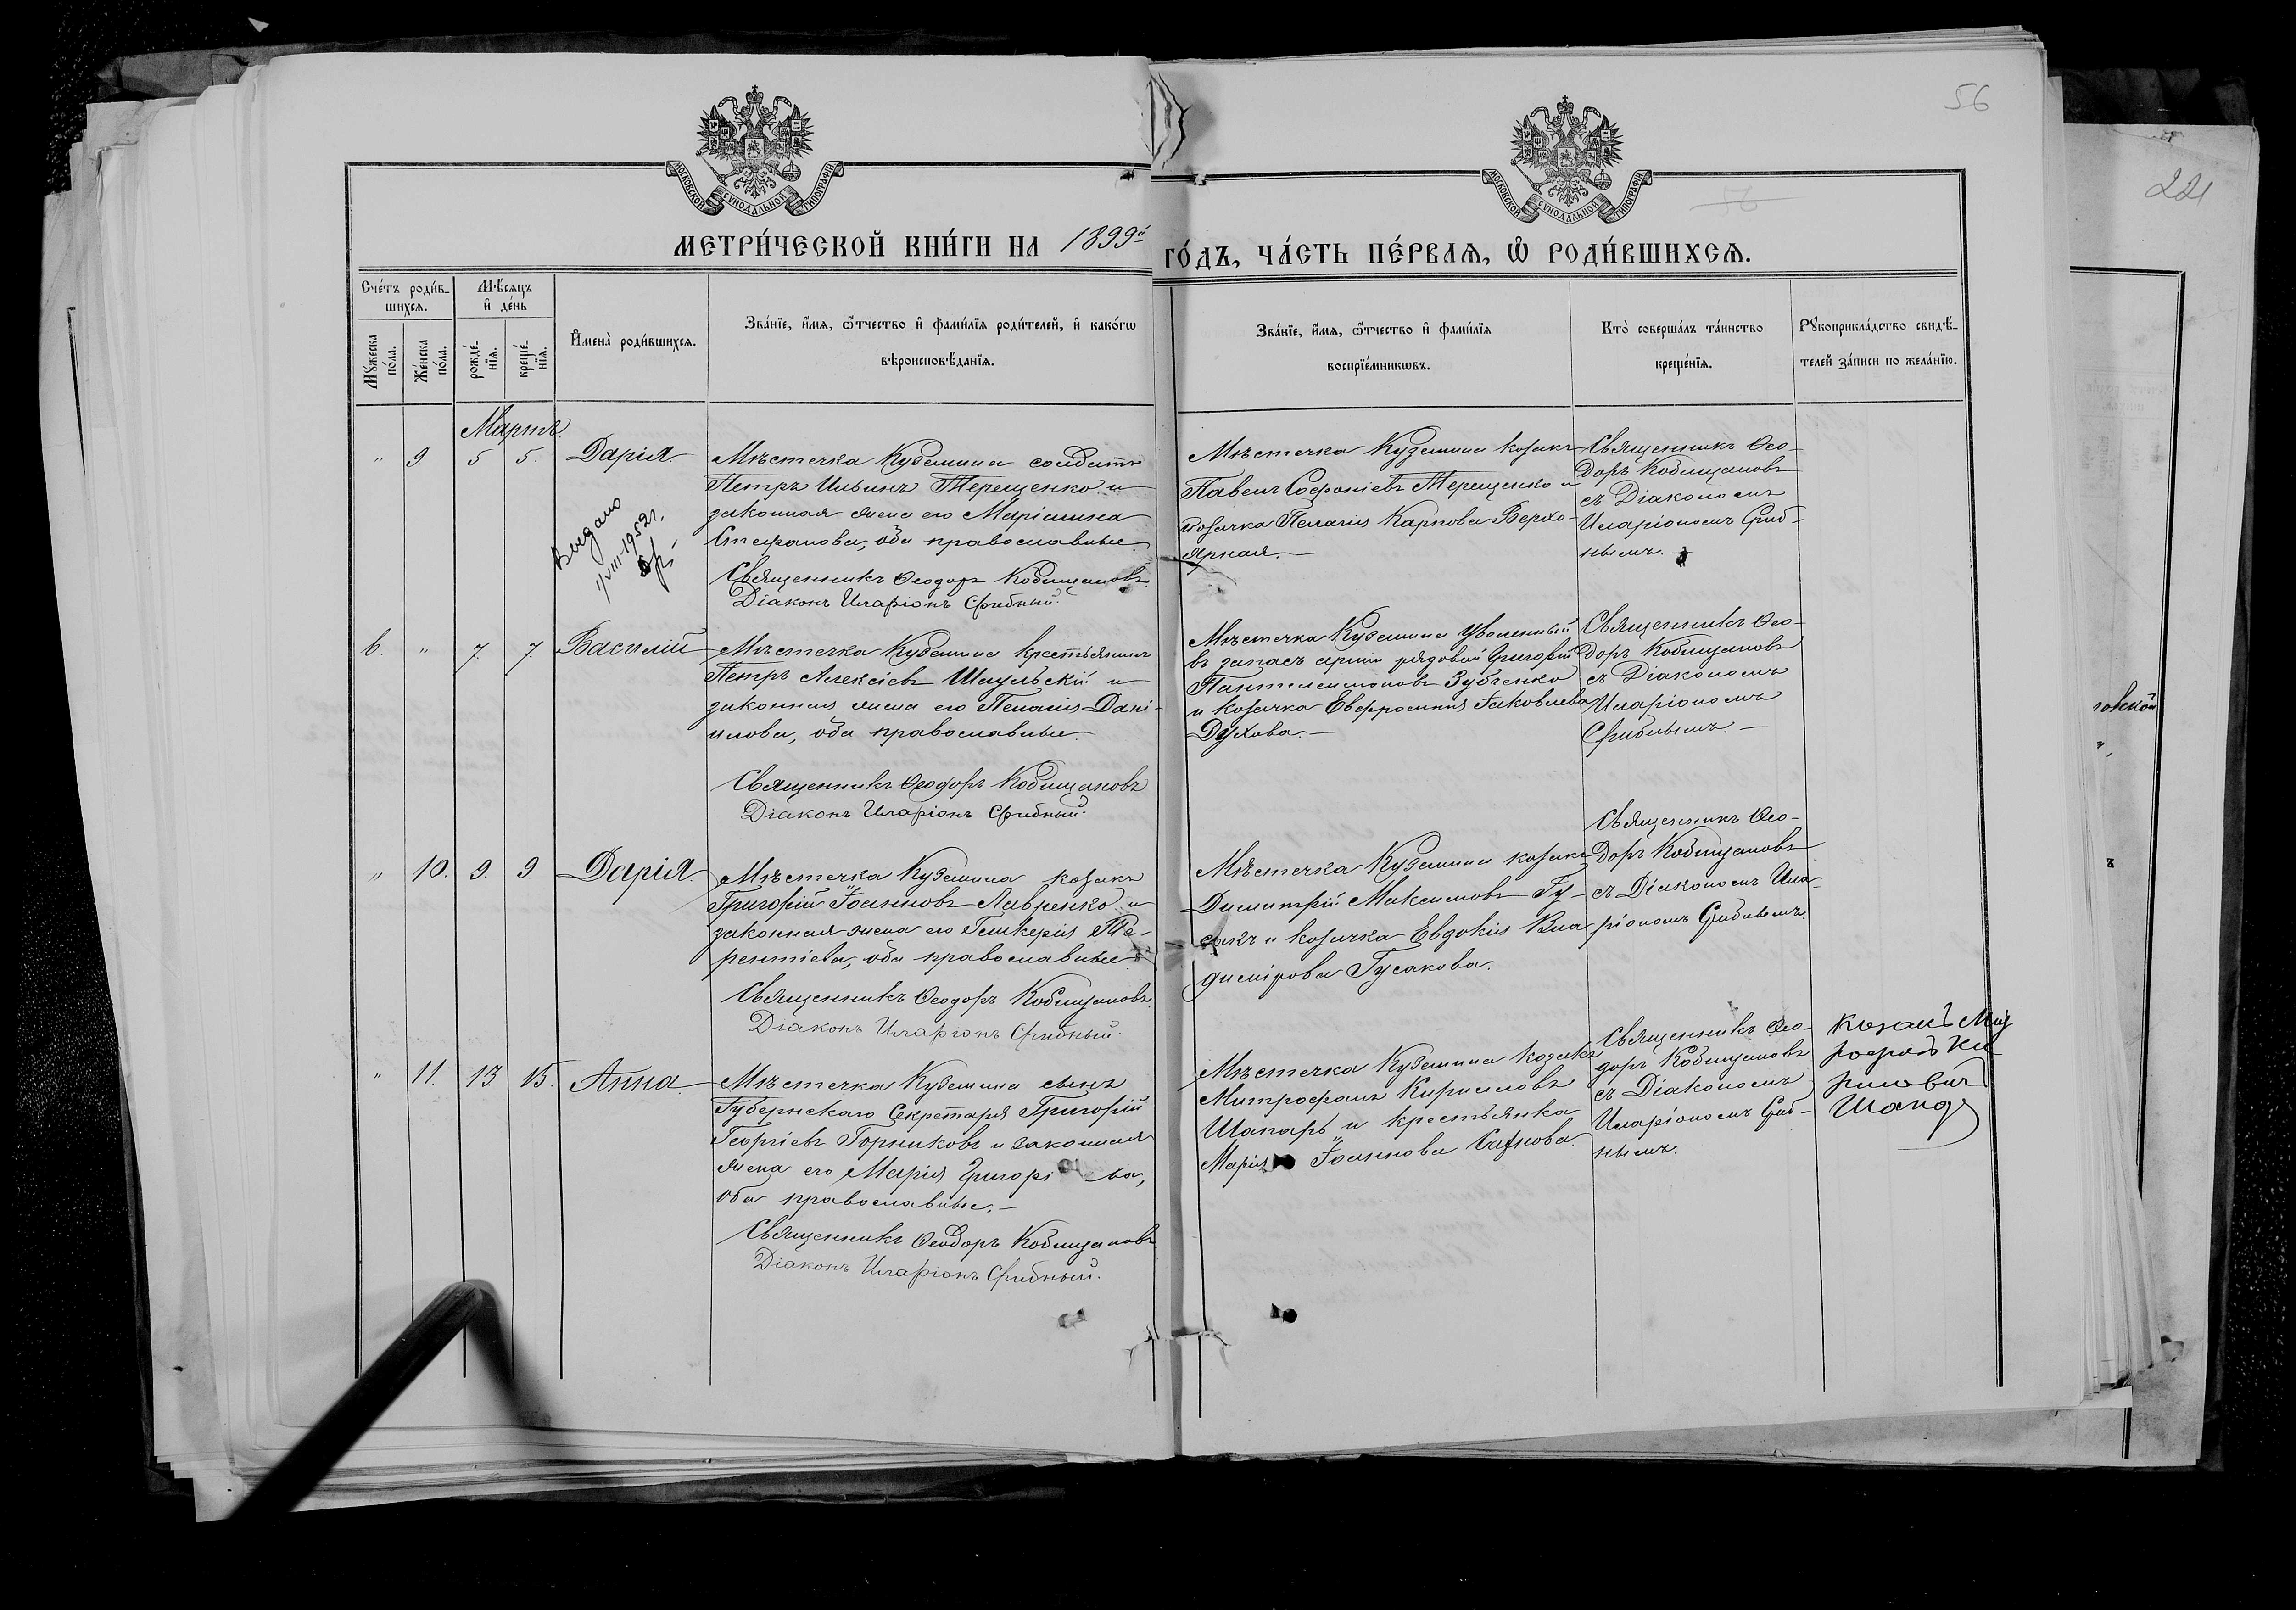 56
221
МОСКОВСКОЙ СУНОДАЛЬНОЙ ТИПОГРАФІИ
МОСКОВСКОЙ СУНОДАЛЬНОЙ ТИПОГРАФІИ
56
МЕТРИ́ЧЕСКОЙ КНИ́ГИ НА 1899й ГО́ДЪ, ЧА́СТЬ ПЕ́РВАѦ, Ѡ РОДИ́ВШИХСѦ.
Сче́тъ роди́в-
шихсѧ.
Мꙋ́жеска по́ла.
Же́нска по́ла.
Мѣ́сѧцъ и҆ де́нь
рожде́-
нїѧ.
креще́-
нїѧ.
И҆мена̀ роди́вшихсѧ.
Зва́нїе, и҆́мѧ, ѻ҆́тчество и҆ фами́лїѧ роди́телей, и҆ како́гѡ
вѣроисповѣ́данїѧ.
Зва́нїе, и҆́мѧ, ѻ҆́тчество и҆ фами́лїѧ
воспрїе́мникѡвъ.
Кто̀ соверша́лъ та́инство
креще́нїѧ.
Рꙋкоприкла́дство свидѣ́-
телей за́писи по жела́нїю.
Мартъ
" 9. 5 5. Дарія.
Мѣстечка Куземина солдатъ
Петръ Ильинъ Терещенко и
законная жена его Маріамна
Стефанова, оба православные.
Священникъ Ѳеодоръ Кобищановъ
Діаконъ Иларіонъ Срибный.
Выдано
1/VIII-1952г.
Мѣстечка Куземина козакъ
Павелъ Софоніевъ Терещенко и
козачка Пелагія Карпова Верхо-
ярная.
Священникъ Ѳео-
доръ Кобищановъ
съ Діакономъ
Иларіономъ Сриб-
нымъ.
6. " 7. 7. Василій
Мѣстечка Куземина крестьянинъ
Петръ Алексіевъ Шаульскій и
законная жена его Пелагія Дані-
илова, оба православные.
Священникъ Ѳеодоръ Кобищановъ
Діаконъ Иларіонъ Срибный.
Мѣстечка Куземина уволенный
въ запасъ арміи рядовой Григорій
Пантелеимоновъ Зубченко
и козачка Евфросинія Іаковлева
Духова.
Священникъ Ѳео-
доръ Кобищановъ
съ Діакономъ
Иларіономъ
Срибнымъ.
" 10. 9. 9. Дарія.
Мѣстечка Куземина козакъ
Григорій Іоанновъ Лавренко и
законная жена его Гликерія Те-
рентіева, оба православные
Священникъ Ѳеодоръ Кобищановъ.
Діаконъ Иларіонъ Срибный.
Мѣстечка Куземина козакъ
Димитрій Максимовъ Гу-
сакъ и козачка Евдокія Вла-
димірова Гусакова.
Священникъ Ѳео-
доръ Кобищановъ
съ Діакономъ Ила-
ріономъ Срибнымъ.
" 11. 13 15. Анна
Мѣстечка Куземина сынъ
Губернскаго Секретаря Григорій
Георгіевъ Горниковъ и законная
жена его Марія Григорі ва,
оба православные.
Священникъ Ѳеодоръ Кобищановъ
Діаконъ Иларіонъ Срибный.
Мѣстечка Куземина козакъ
Митрофанъ Кирилловъ
Шапаръ и крестьянка
Марія Іоаннова
Священникъ Ѳео-
доръ Кобищановъ
съ Діакономъ
Иларіономъ Сриб-
нымъ.
козакъ Мит
рофанъ Ки
риловичъ